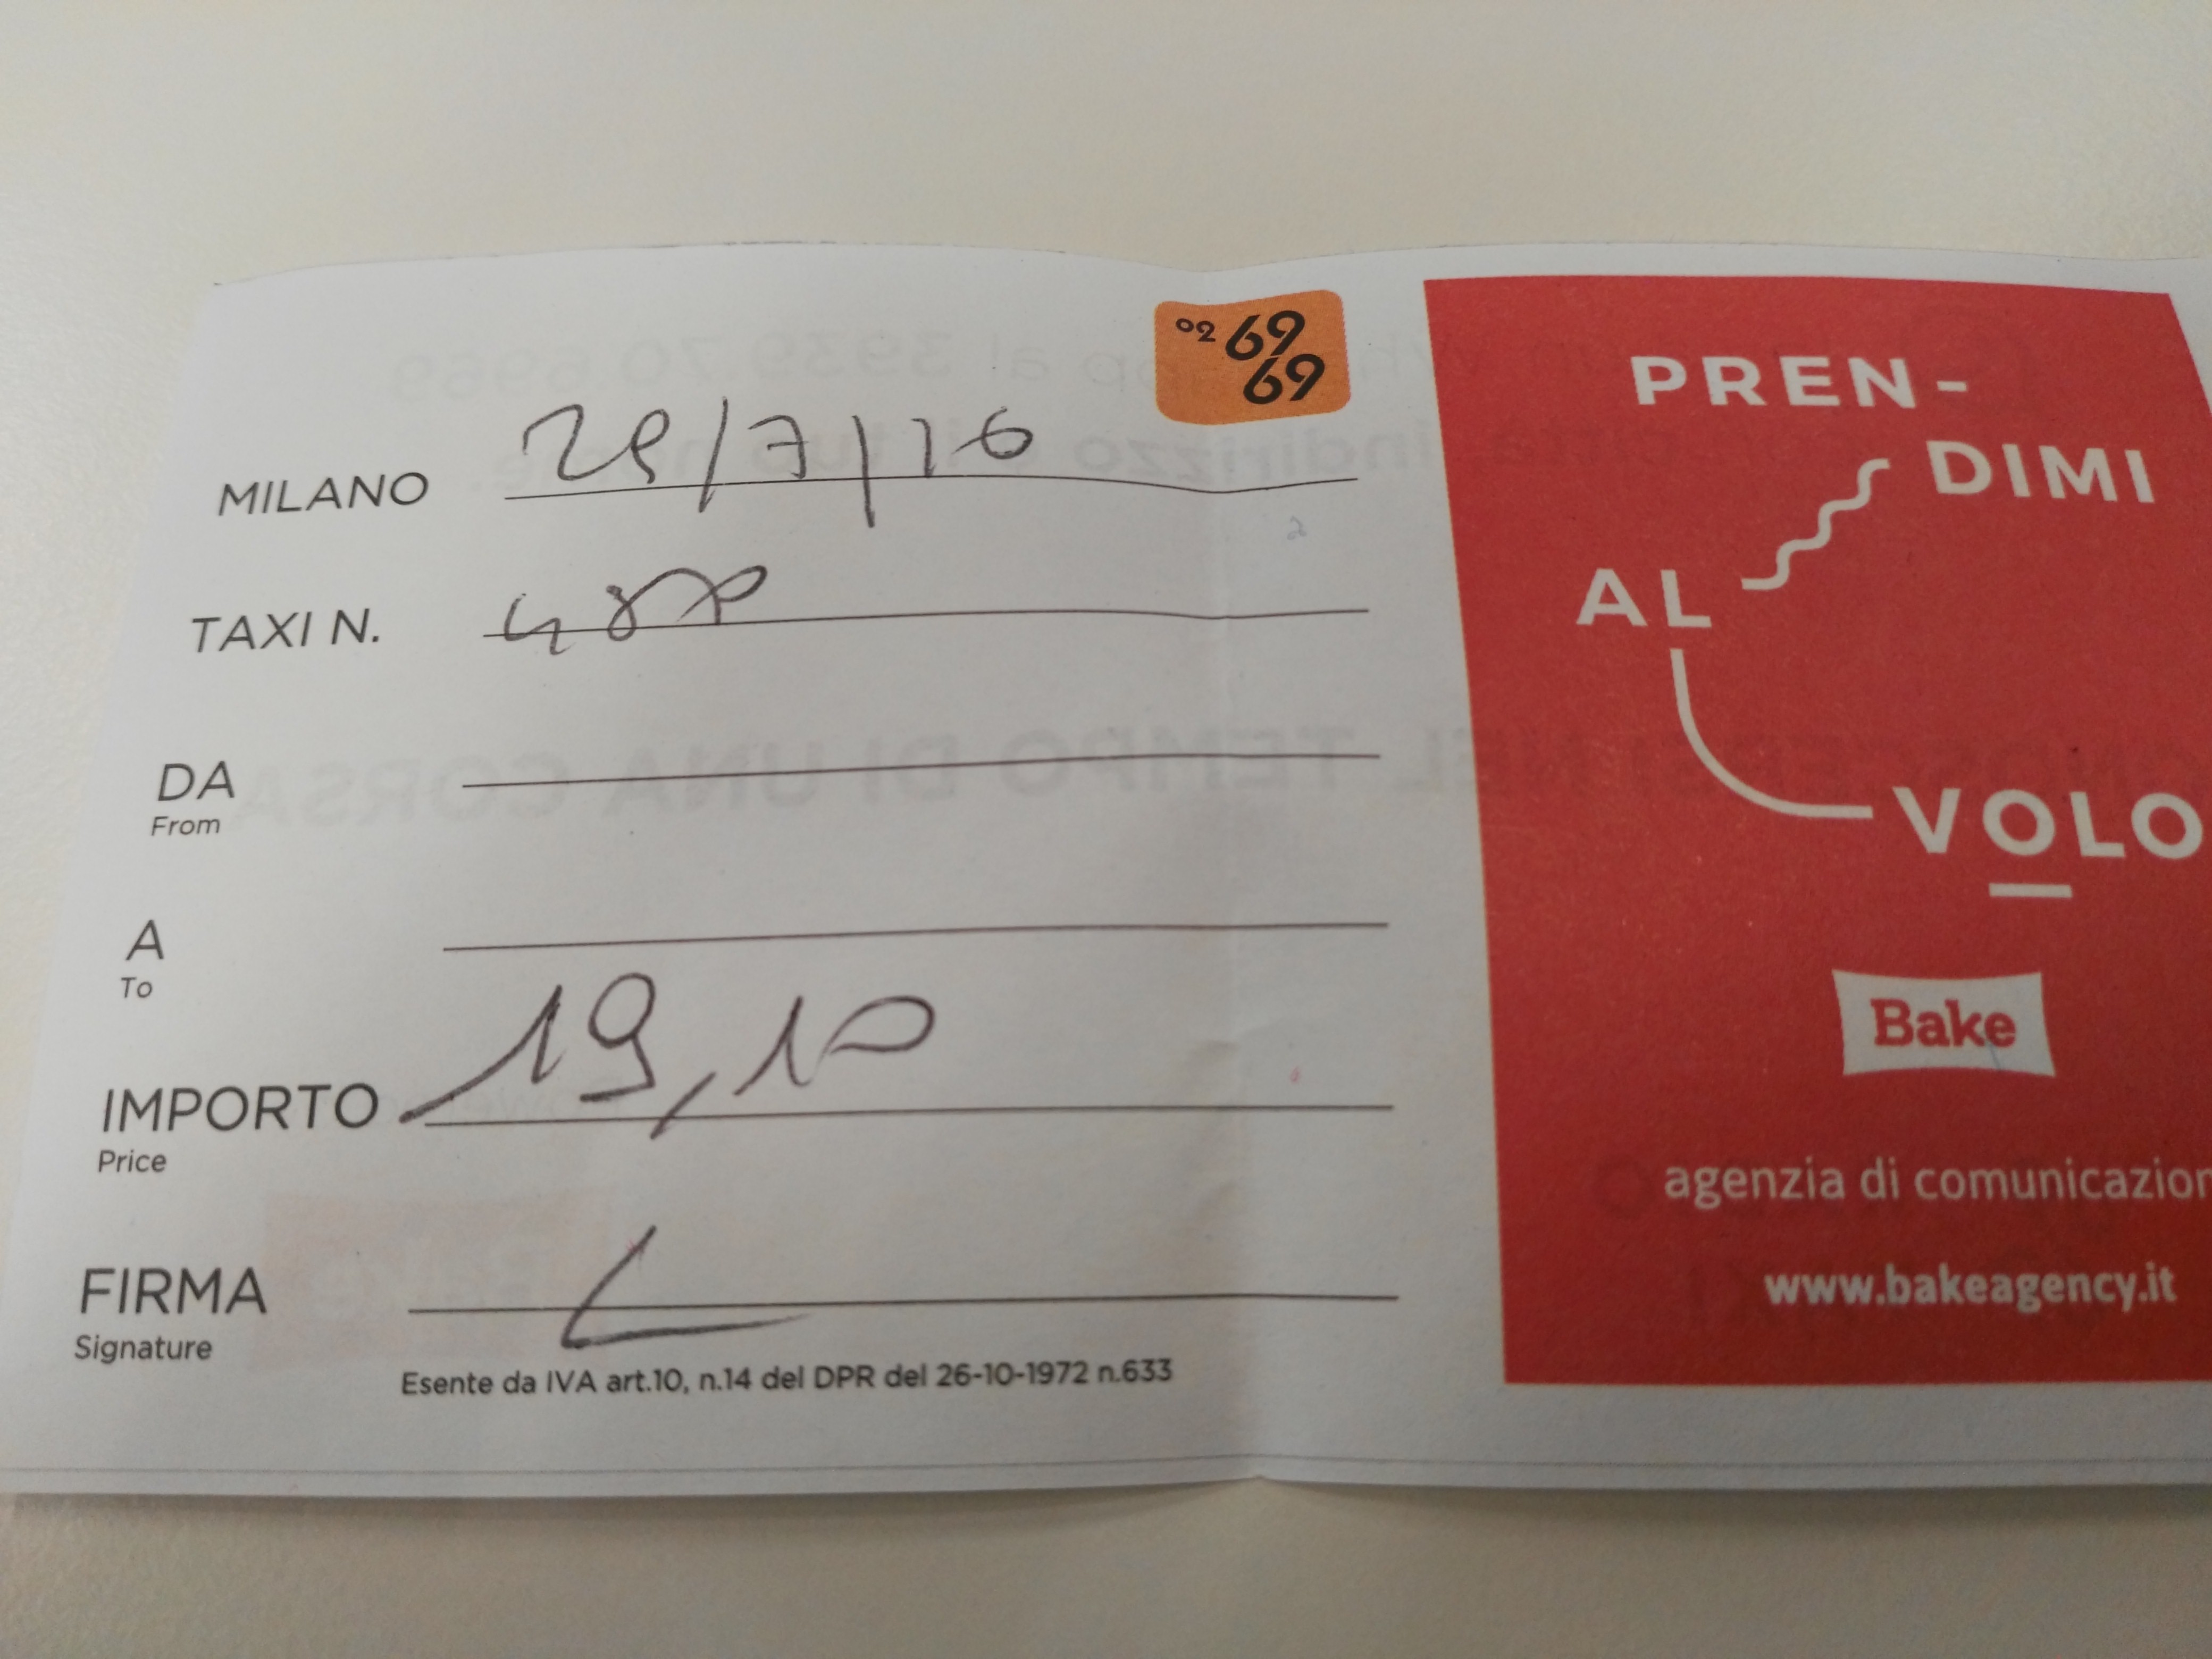 02 69
69
MILANO 29/7/16
TAXI N.
DA
From
A
To
IMPORTO 19,10
Price
FIRMA
Signature
Esente da IVA art.10, n.14 del DPR del 26-10-1972 n.633
PREN-
DIMI
AL
VOLO
Bake
agenzia di comunicazion
www.bakeagency.it